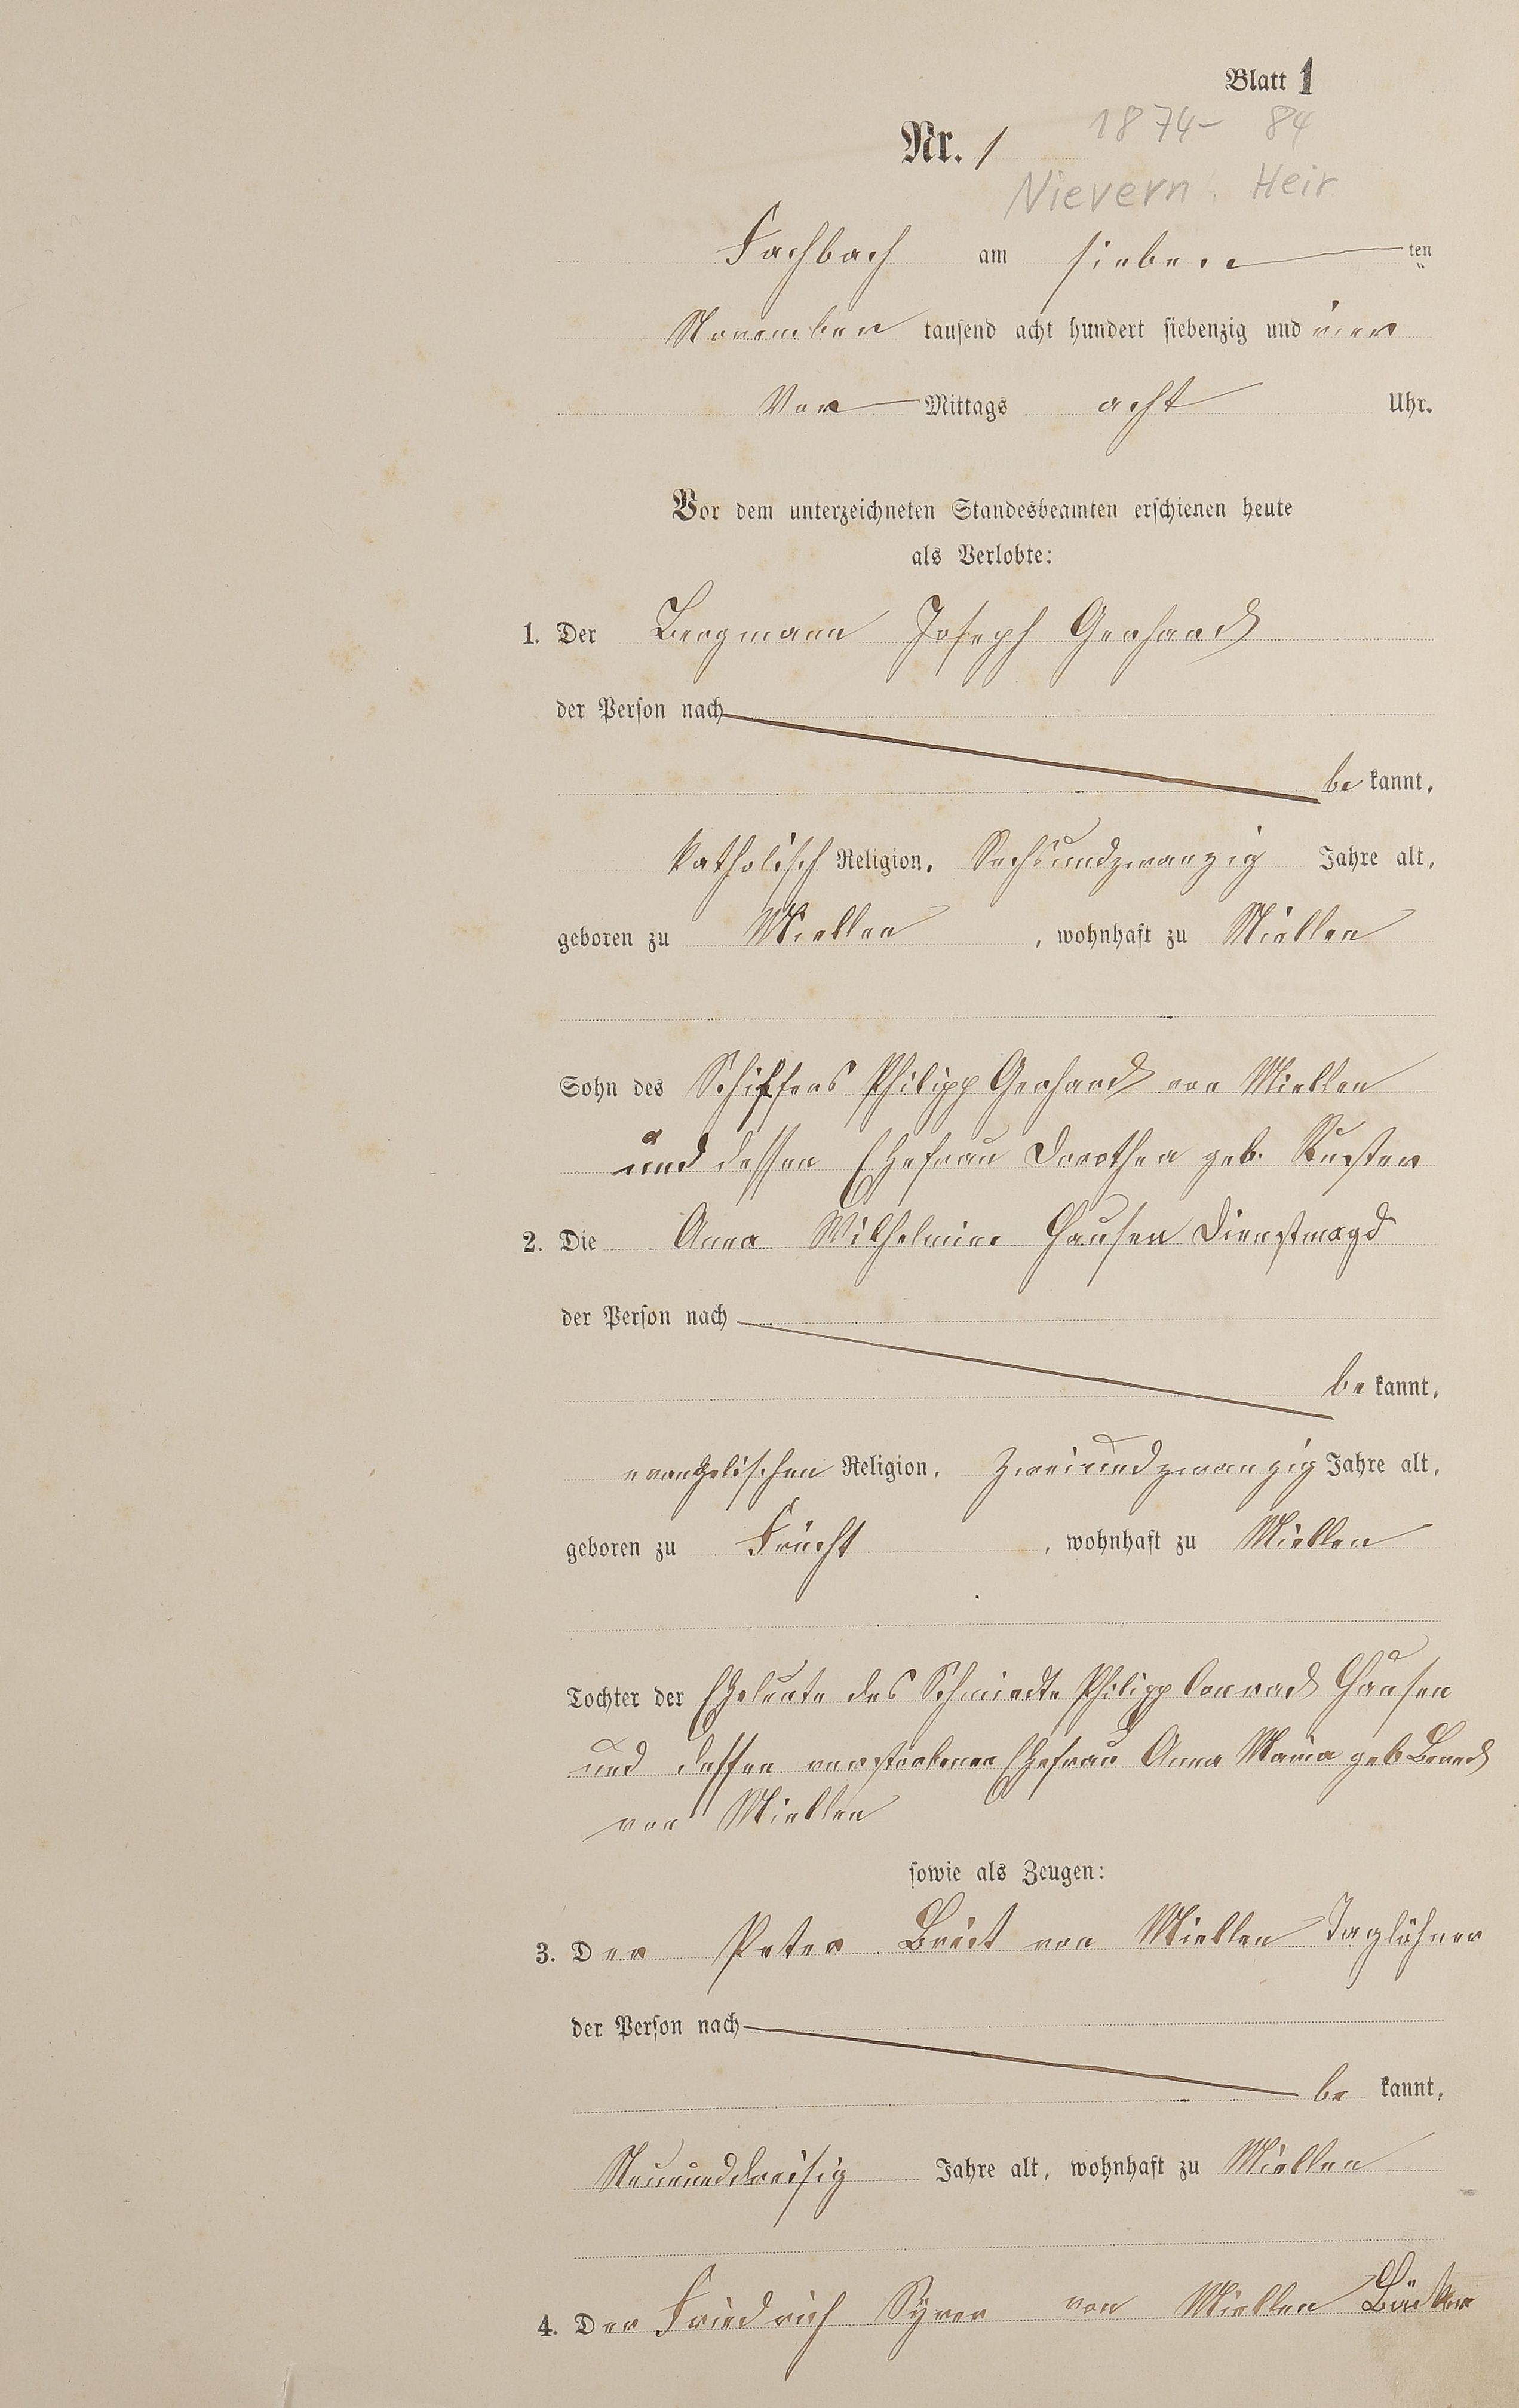 Blatt 1
1874– 84
Nr. 1
Nievern. Heir
Fachbach am sieben ten
November tausend acht hundert siebenzig und vier
Vor Mittags acht Uhr.
Vor dem unterzeichneten Standesbeamten erschienen heute
als Verlobte:
1. Der Bergmann Joseph Gerhard
der Person nach
be kannt,
katholisch Religion, Sechsundzwanzig Jahre alt,
geboren zu Miellen, wohnhaft zu Miellen
Sohn des Schiffers Philipp Gerhard von Miellen
und dessen Ehefrau Dorothea geb.
2. Die Anna Wilhelmine Hausen Dienstmagd
der Person nach
be kannt,
evangelischen Religion, Zweiundzwanzig Jahre alt,
geboren zu Frücht, wohnhaft zu Miellen
Tochter der Eheleute des Schmiedte Philipp Conrad Hausen
und dessen verstorbenen Ehefrau Anna Maria geb
von Miellen
sowie als Zeugen:
3. Der Peter von Miellen Taglöhner
der Person nach
be kannt,
Neununddreisig Jahre alt, wohnhaft zu Miellen
4. Der Friedrich von Miellen Bäcker